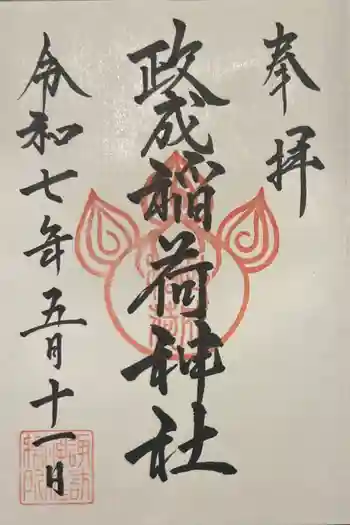 奉拝
政成稲荷神社
令和七年五月十一日